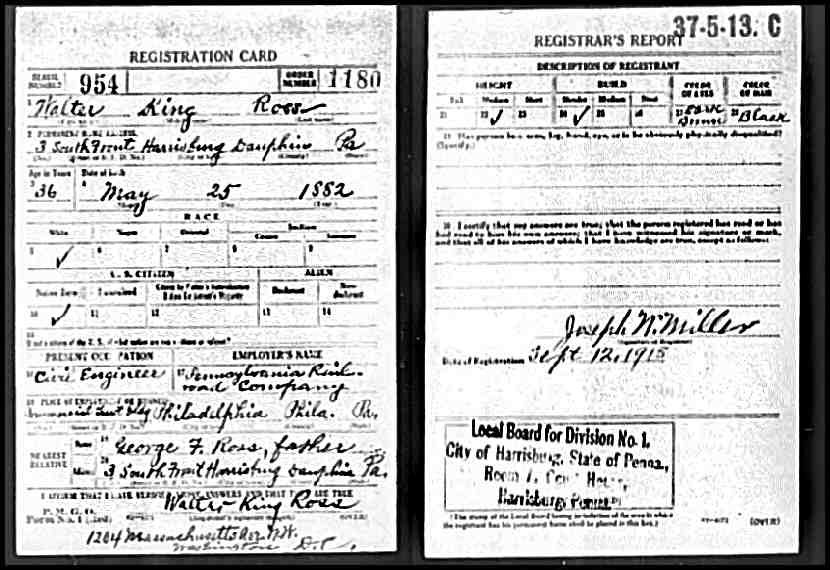 REGISTRATION CARD
SERIAL NUMBER 954
ORDER NUMBER 1180
Walter King Ross
3 South Front Harrisburg Dauphin Pa
Age in Years
Date of birth
36 May 25 1882
RACE
White
Oriental
Indian
5 ✓ 6 7 8 9
U. S. CITIZEN
ALIEN
Native Born
10 ✓ 11 12 13 14
15
PRESENT OCCUPATION
EMPLOYER'S NAME
Civil Engineer
Pennsylvania Rail-
road Company
Philadelphia Phila. Pa.
NEAREST RELATIVE
Name
George F. Ross, father
3 South Front Harrisburg Dauphin Pa.
I AFFIRM THAT I HAVE VERIFIED ABOVE ANSWERS AND THAT THEY ARE TRUE
P. M. G. O.
Form No. 1 (Red)
Walter King Ross
(OVER)
1204 Massachusetts Ave N.W.
Washington D.C.
37-5-13. C
REGISTRAR'S REPORT
DESCRIPTION OF REGISTRANT
HEIGHT
BUILD
COLOR OF EYES
COLOR OF HAIR
Tall Medium Short Slender Medium Stout
21 22 ✓ 23 24 ✓ 25 26 27 Dark Brown 28 Black
29 Has person lost arm, leg, hand, eye, or is he obviously physically disqualified?
(Specify.)
30 I certify that my answers are true; that the person registered has read or has
had read to him his own answers; that I have witnessed his signature or mark,
and that all of his answers of which I have knowledge are true, except as follows:
Joseph N. Miller
(Signature of Registrar)
Date of Registration Sept 12, 1918
Local Board for Division No. 1,
City of Harrisburg, State of Penna.,
Harrisburg, Penna.
(The stamp of the Local Board having jurisdiction of the area in which
the registrant has his permanent home shall be placed in this box.)
(OVER)